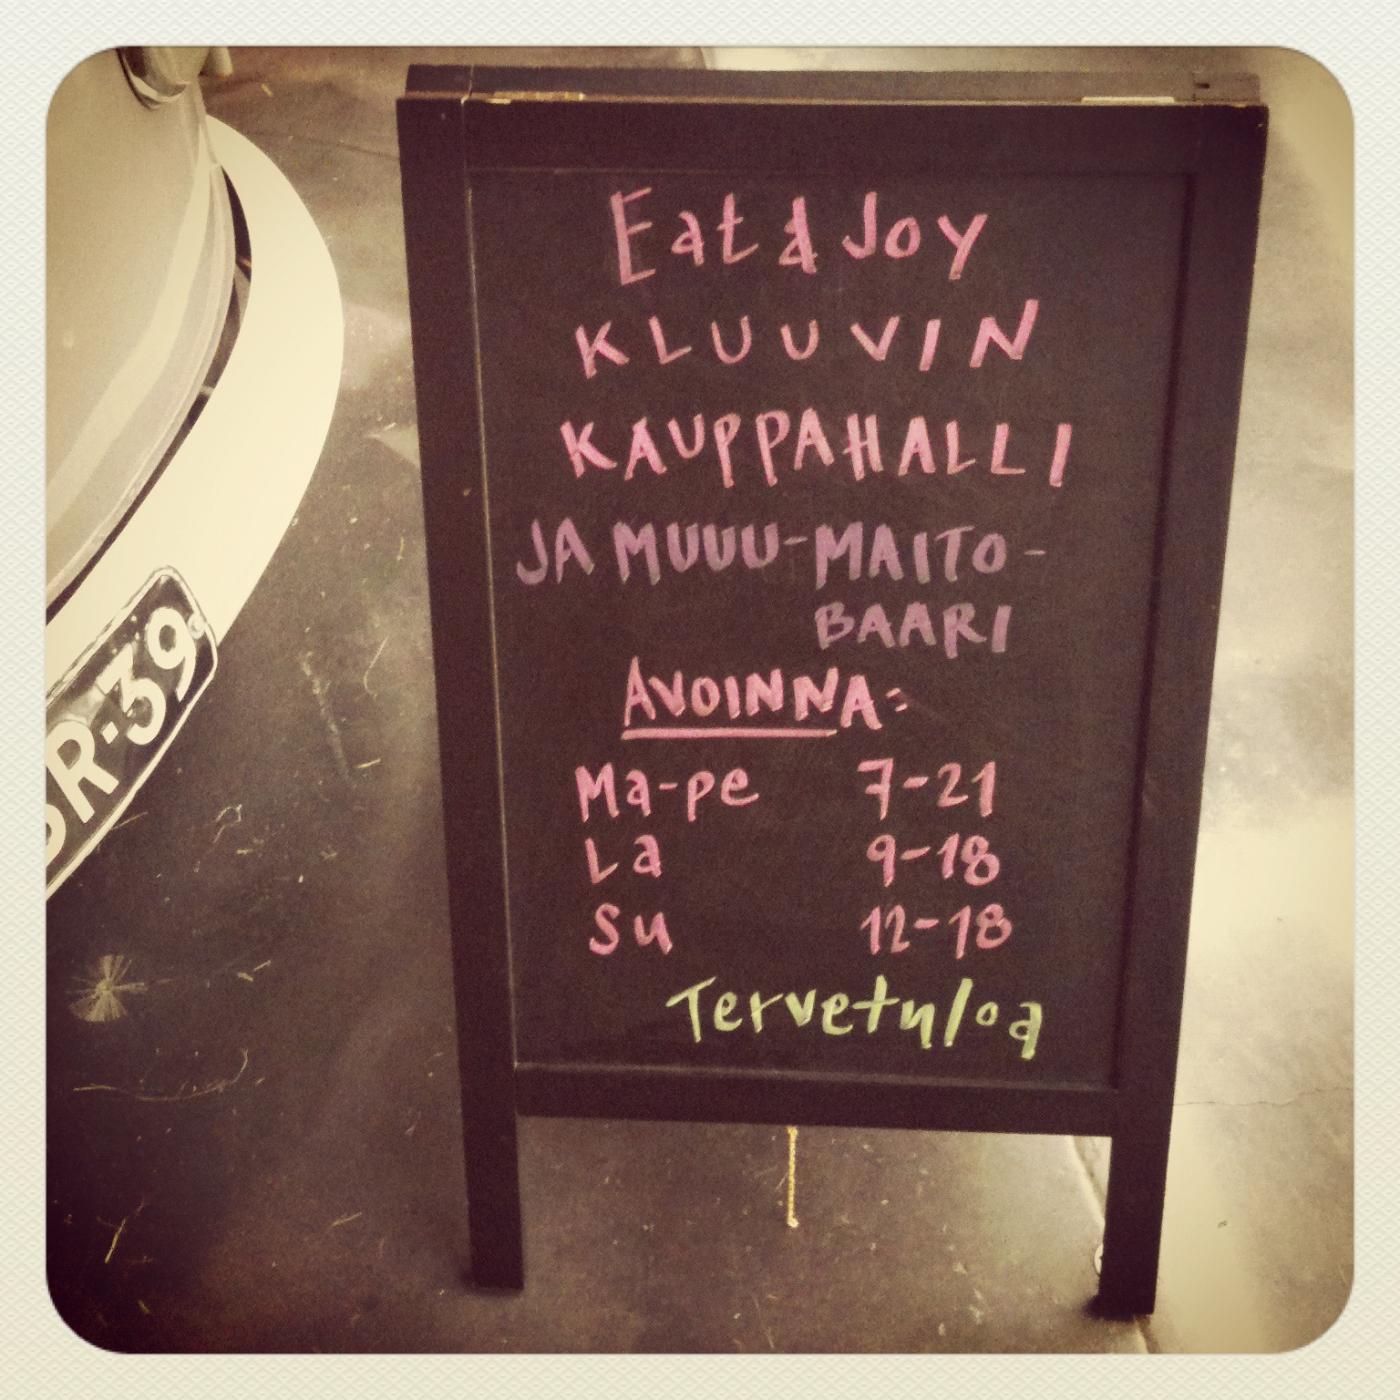 Eat & Joy
KLUUVIN
KAUPPAHALLI
JA MUUU-MAITO-
BAARI
AVOINNA:
Ma-pe 7-21
La 9-18
Su 12-18
Tervetuloa
R-39